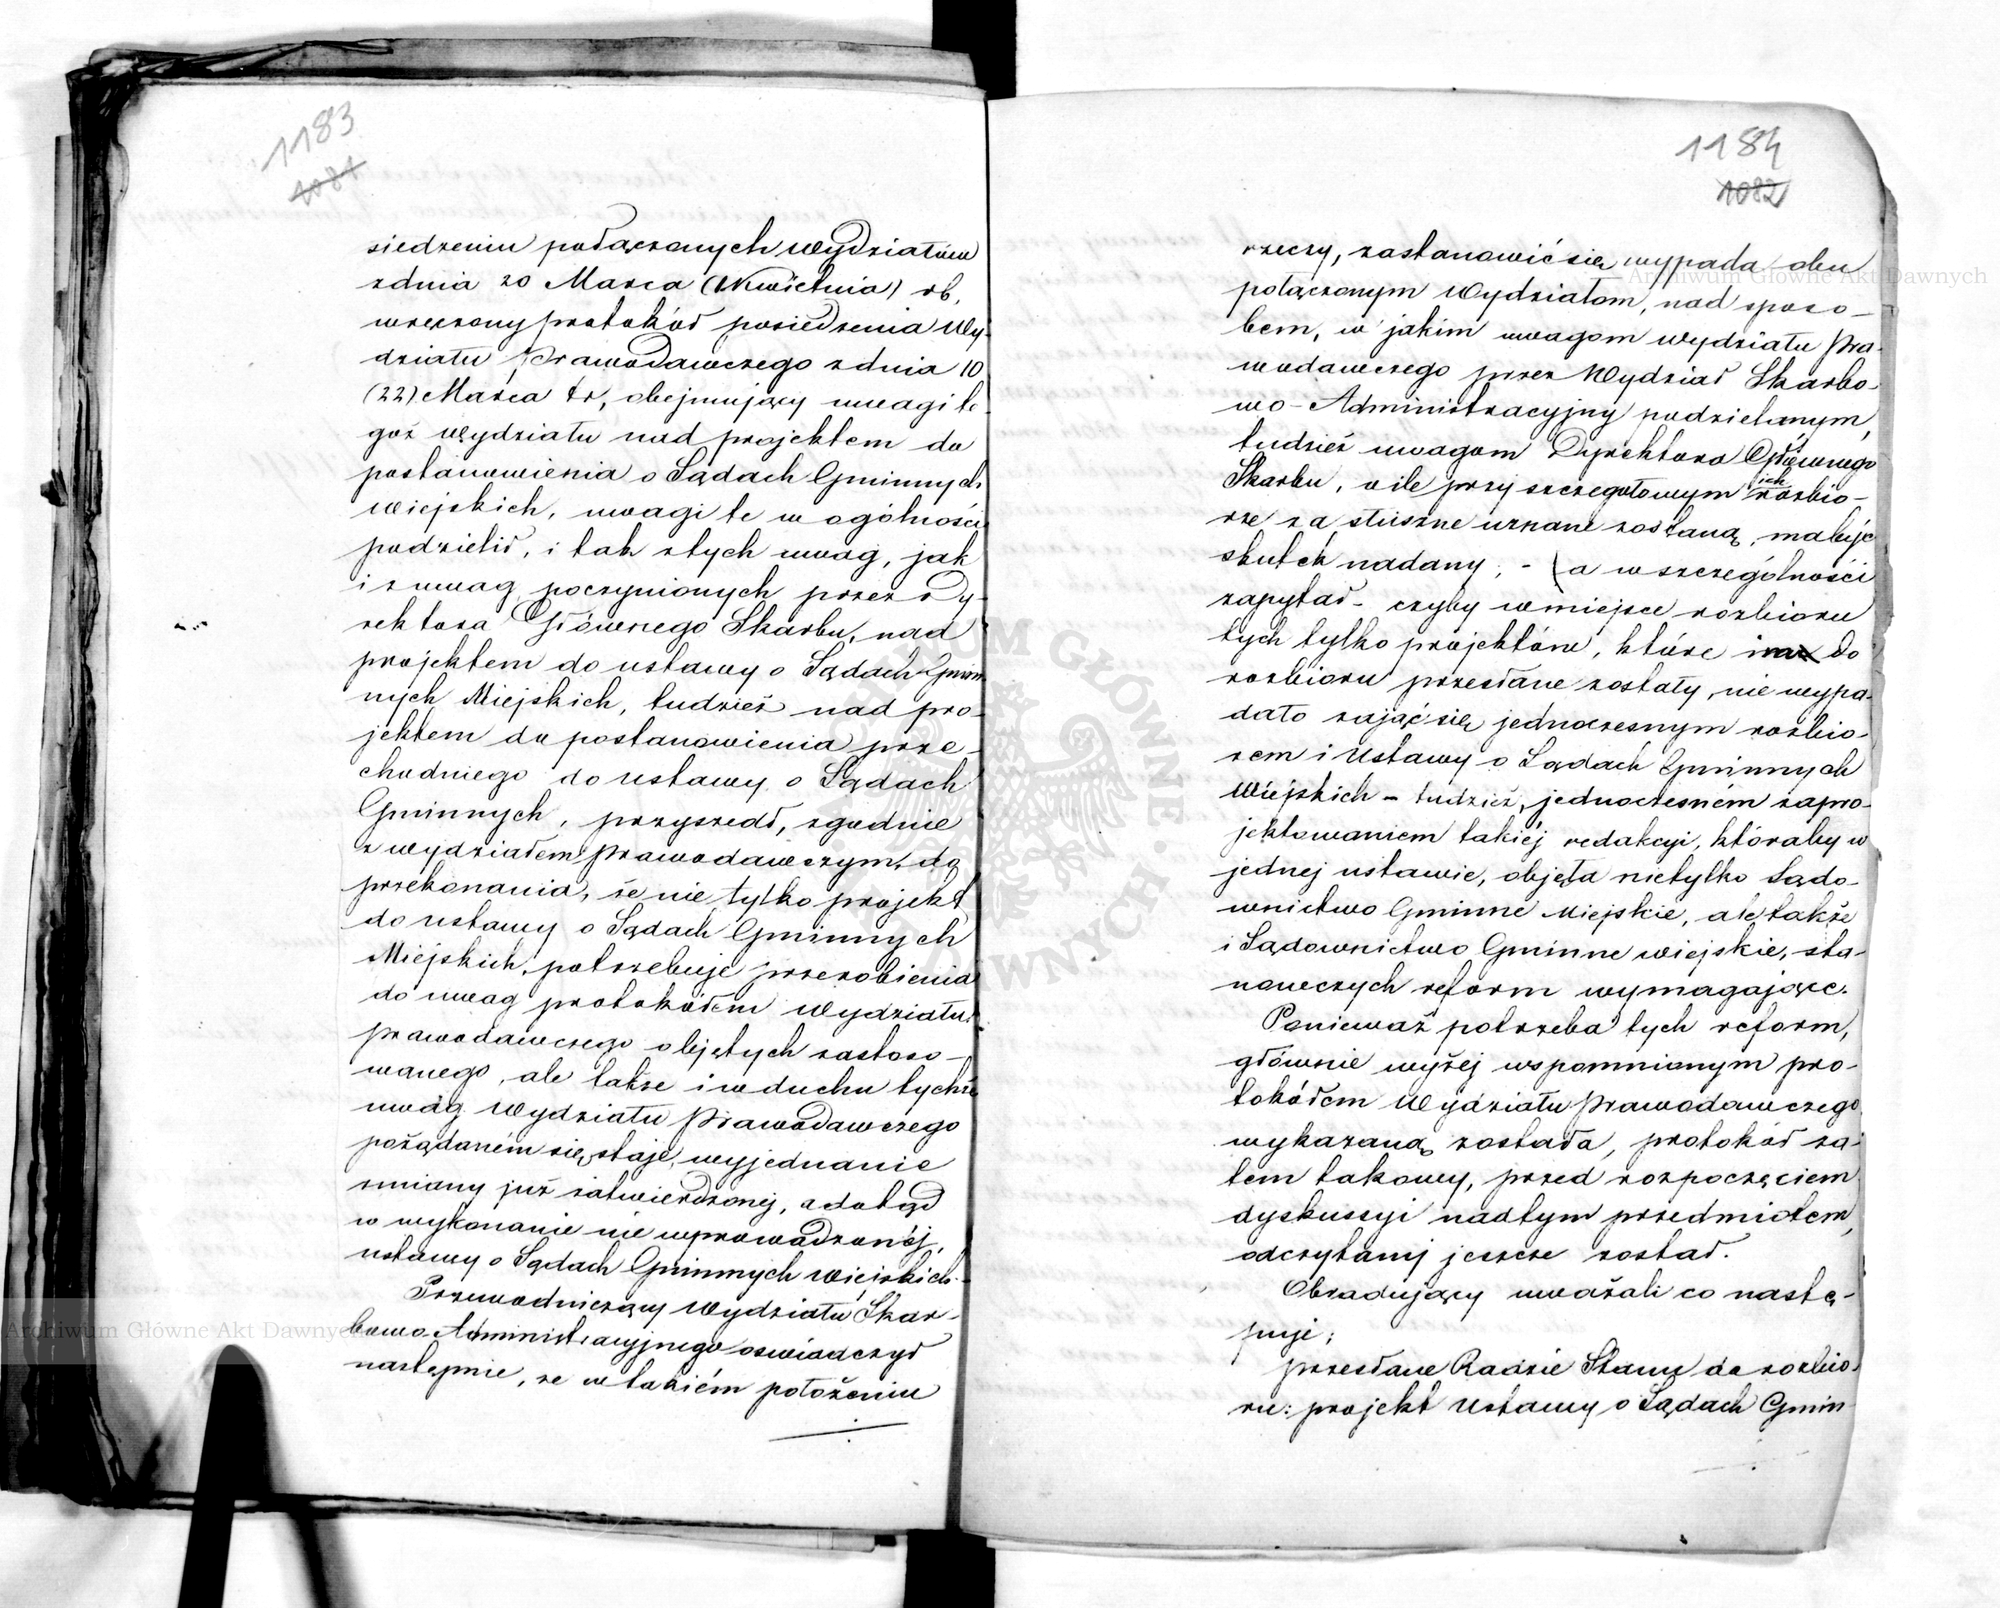 1183
1081
siedzeniu połączonych Wydziałów
z dnia 20 Marca (1 Kwietnia) rb,
wręczony protokół posiedzenia Wy-
działu Prawodawczego z dnia 10
(22) Marca tr, obejmujący uwagi te-
goż Wydziału nad projektem do
postanowienia o Sądach Gminnych
Wiejskich, uwagi te w ogólności
podzielił, i tak z tych uwag, jak
i z uwag poczynionych przez Dy-
rektora Głównego Skarbu, nad
projektem do ustawy o Sądach Gmin-
nych Miejskich, tudzież nad pro-
jektem do postanowienia prze-
chodniego do ustawy o Sądach
Gminnych, przyszedł, zgodnie
z wydziałem Prawodawczym, do
przekonania, że nie tylko projekt
do ustawy o Sądach Gminnych
Miejskich, potrzebuje przerobienia
do uwag protokółem Wydziału
prawodawczego objętych zastoso-
wanego, ale także i w duchu tychże
uwag Wydziału Prawodawczego
pożądaném się staje, wyjednanie
zmiany już zatwierdzonej, a dotąd
w wykonanie nie wprowadzonéj,
ustawy o Sądach Gminnych wiejskich.
Przewodniczący Wydziału Skar-
bowo-Administracyjnego oświadczył
następnie, że w takiém położeniu
1184
1082
rzeczy, zastanowić się wypada obu
połączonym Wydziałom, nad sposo-
bem, w jakim uwagom wydziału Pra-
wodawczego przez Wydział Skarbo-
wo-Administracyjny podzielanym,
tudzież uwagom Dyrektora Głównego
Skarbu, o ile przy szczegółowym ich rozbio-
rze za słuszne uznane zostaną, ma być
skutek nadany; - a w szczególności
zapytał - czyby w miejsce rozbioru
tych tylko projektów, które do
rozbioru przesłane zostały, nie wypa-
dało zająć się jednoczesnym rozbio-
rem i Ustawy o Sądach Gminnych
Wiejskich - tudzież, jednoczesném zapro-
jektowaniem takiéj redakcyi, któraby w
jednej ustawie, objęła nietylko Sądo-
wnictwo Gminne Miejskie, ale także
i Sądownictwo Gminne wiejskie, sta-
nowczych reform wymagające.
Ponieważ potrzeba tych reform,
głównie wyżej wspomnianym pro-
tokółem Wydziału Prawodawczego
wykazaną została, protokół za-
tem takowy, przed rozpoczęciem
dyskussyi nad tym przedmiotem,
odczytany jeszcze został.
Obradujący uważali co nastę-
puje;
przesłane Radzie Stanu do rozbio-
ru: projekt Ustawy o Sądach Gmin-
Archiwum Główne Akt Dawnych
Archiwum Główne Akt Dawnych